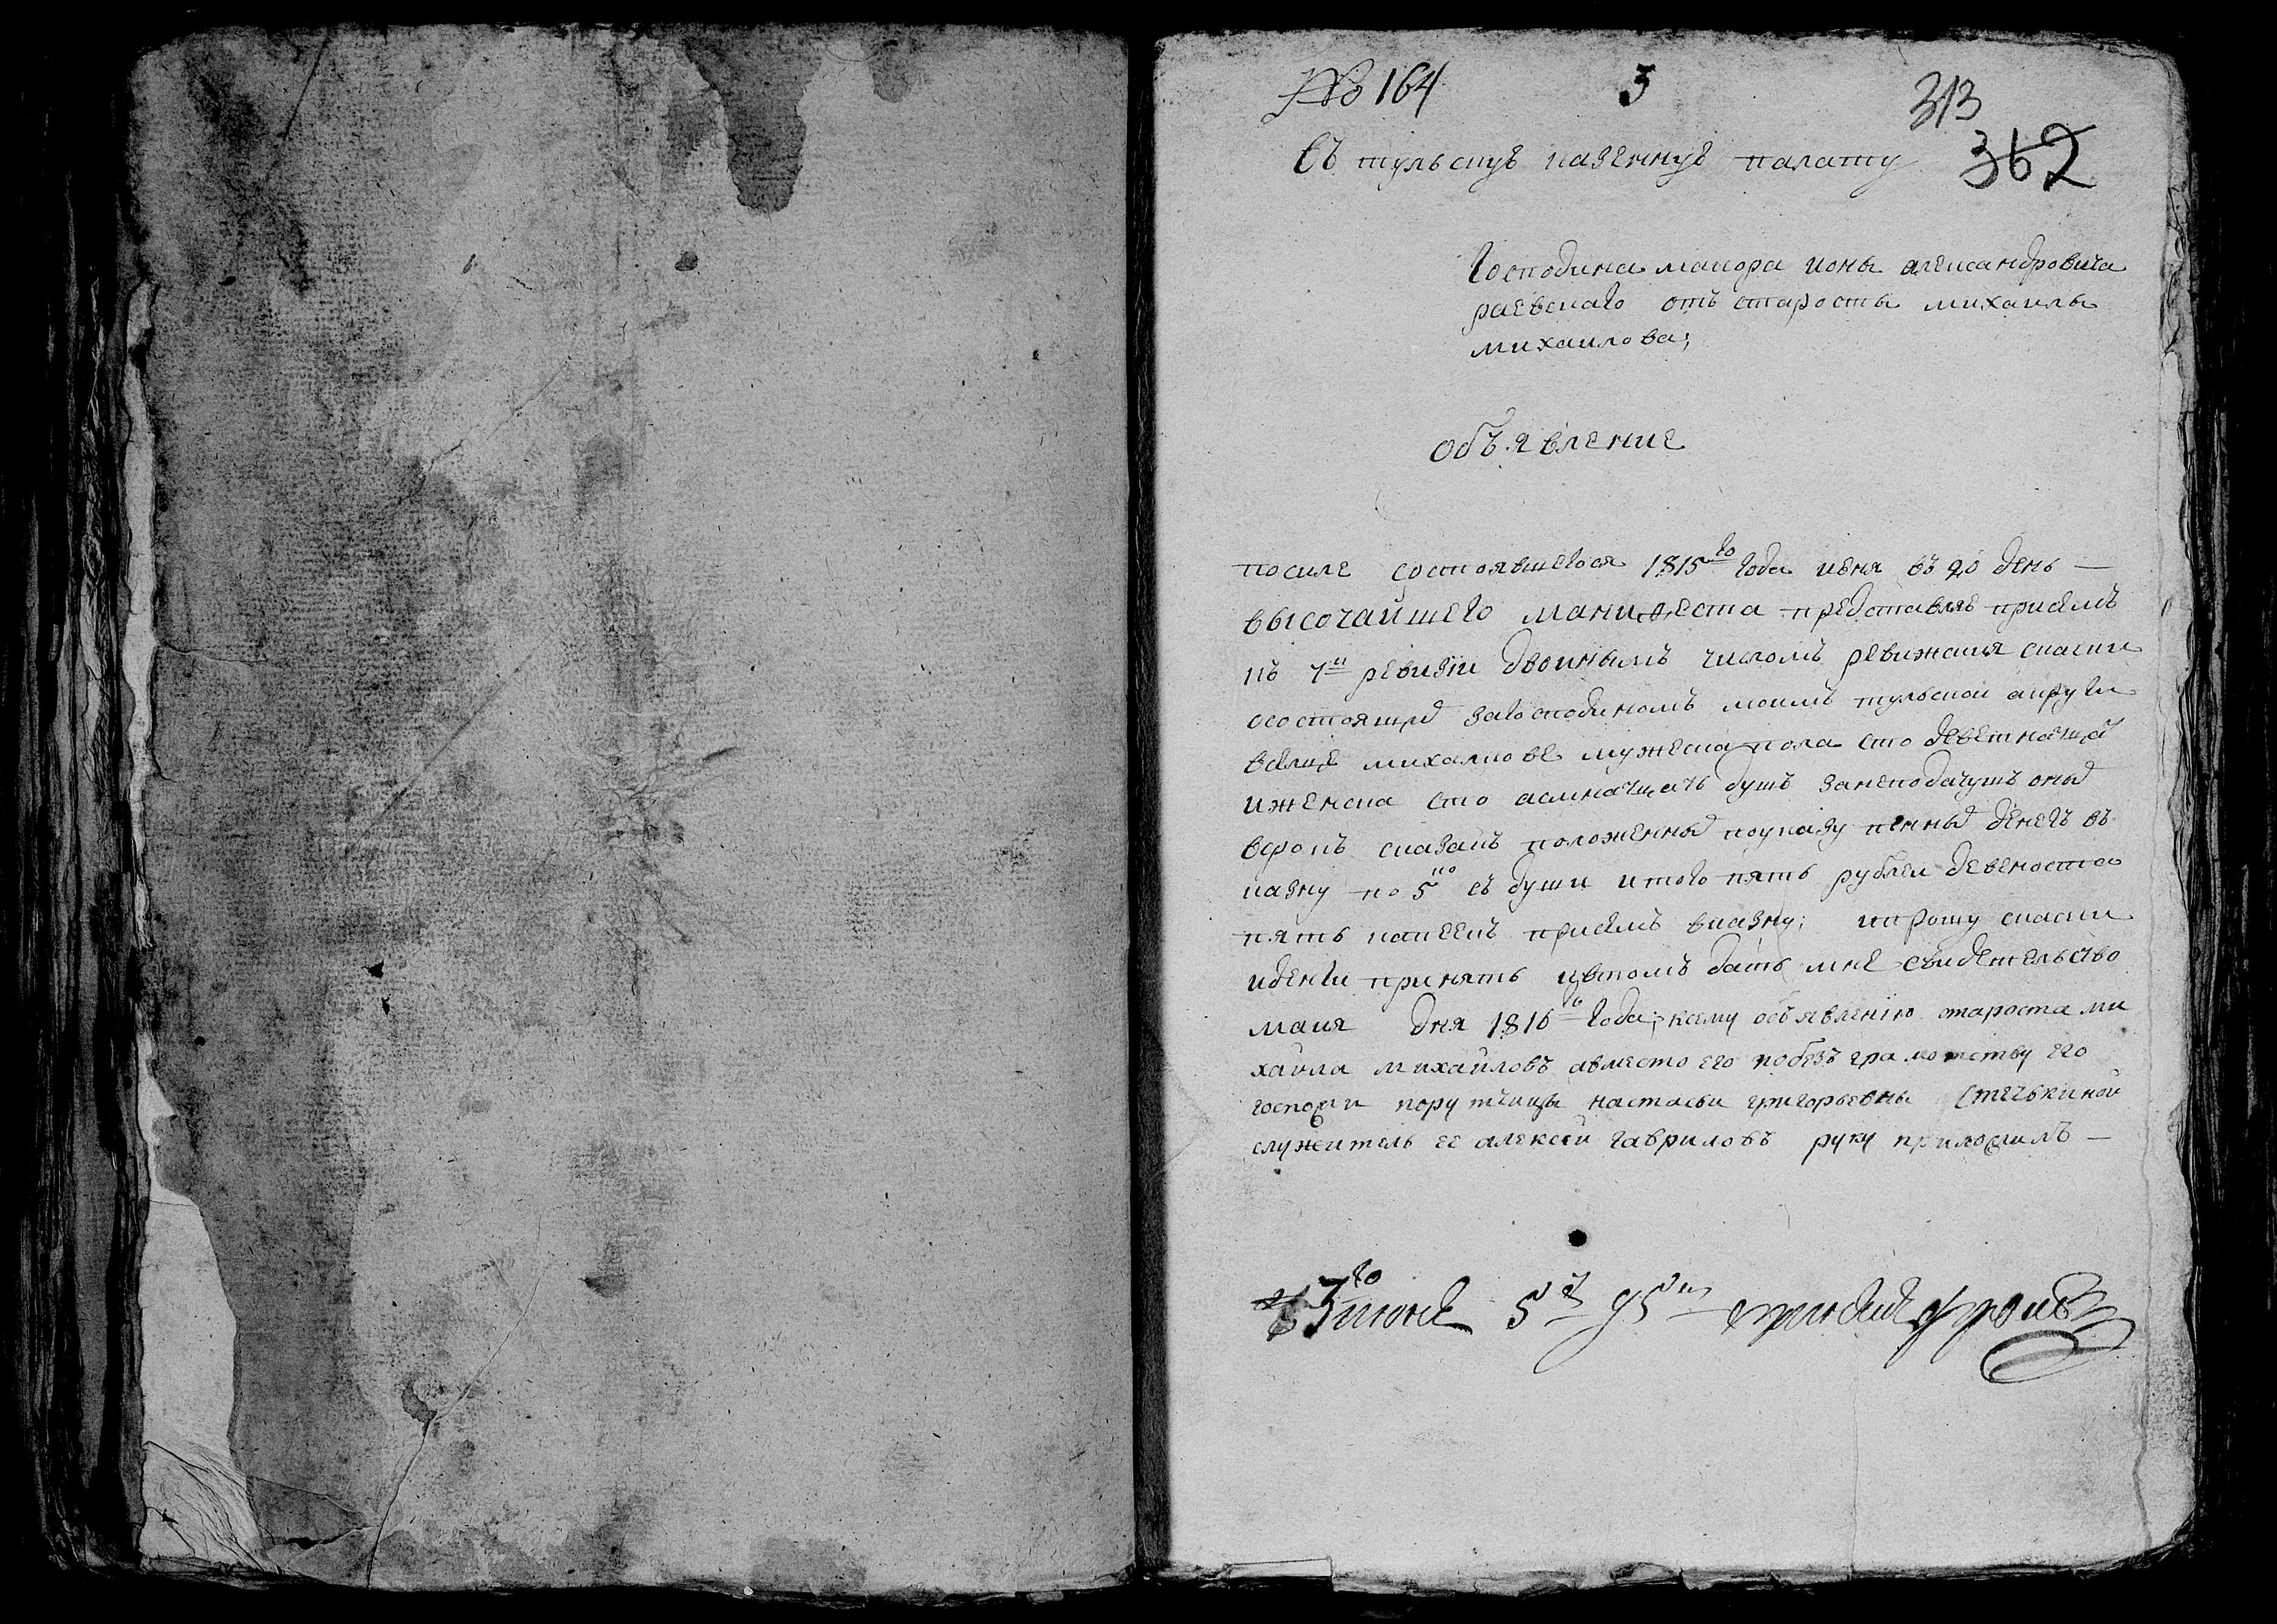 № 164 3 313
362
въ тульскую казенную палату
Господина маиора ионы александровича
раевскаго отъ старосты михаилы
михаилова;
объявление
посиле состоявшегося 1815го года июня въ 20 день —
высочайшего манифеста представляю присемъ
къ 7й ревизии двоинымъ числомъ ревижские скаски
осостоящих загосподиномъ моимъ тульской округи
вселце михалкове мужеска пола сто деветнацат
иженска сто асмнатцать душъ занеподачушъ оных
всрокъ сказакъ положенных поуказу пенных денегъ въ
казну по 5ко съ души итого пять рублеи девеносто
пять капеекъ присемъ вказну; ипрошу скаски
иденги принять ивтомъ дать мне свидетельство
маия дня 1816го года; ксему объявлению староста ми
хаила михаиловъ авместо его побезъграмотству его
госпожи порутчицы настасьи григорьевны
служитель ее алексей гавриловъ руку приложилъ —
3го июня 5р 95к